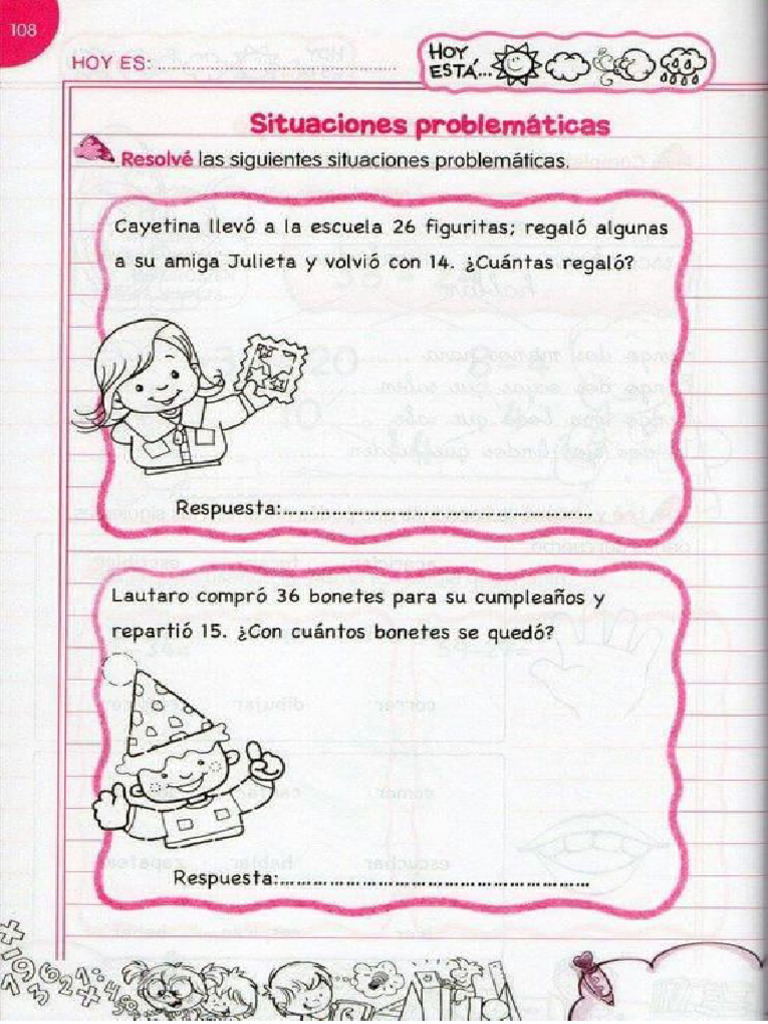 108
HOY ES:
HOY
ESTÁ...
Situaciones problemáticas
Resolvé las siguientes situaciones problemáticas.
Cayetina llevó a la escuela 26 figuritas; regaló algunas
a su amiga Julieta y volvió con 14. ¿Cuántas regaló?
Respuesta:
Lautaro compró 36 bonetes para su cumpleaños y
repartió 15. ¿Con cuántos bonetes se quedó?
Respuesta: